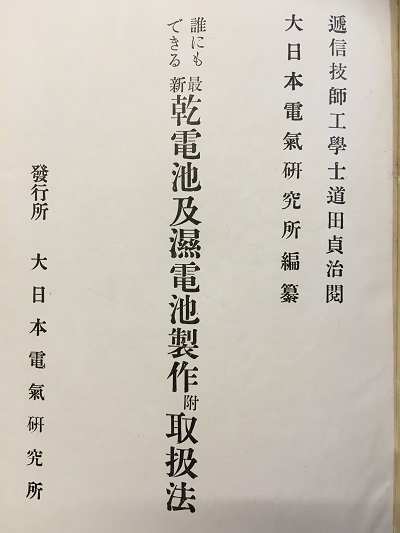 遞信技師工學士道田貞治閱
大日本電氣研究所編纂
誰にも
できる
最新乾電池及濕電池製作附取扱法
發行所 大日本電氣硏究所